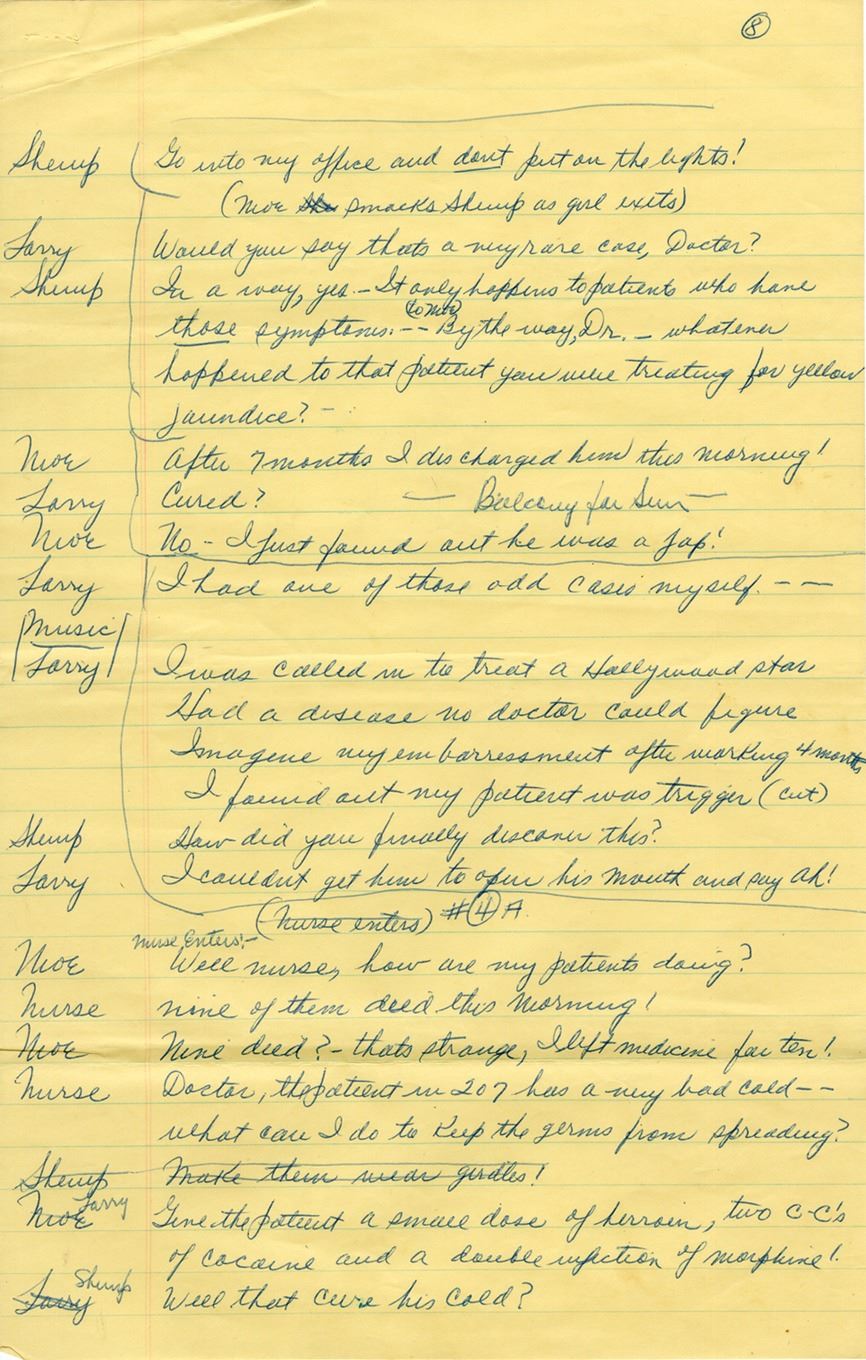 8
Shemp Go into my office and dont put on the lights!
(Moe She smacks Shemp as girl exits)
Larry Would you say thats a very rare case, Doctor?
Shemp In a way, yes. - It only happens to patients who have
to Moe
those symptoms. -- By the way, Dr. - whatever
happened to that patient you were treating for yellow
jaundice? -
Moe After 7 months I discharged him this morning!
Larry Cured? — Balcony for Sun —
Moe No - I just found out he was a Jap!
Larry I had one of those odd cases myself. - -
Music
Larry I was called in to treat a Hollywood star
Had a disease no doctor could figure
Imagine my embarressment after working 4 months
I found out my patient was trigger (cut)
Shemp How did you finally discover this?
Larry I couldnt get him to open his mouth and say Ah!
(Nurse enters) #4 A
Nurse Enters:-
Moe Well nurse, how are my patients doing?
Nurse nine of them died this morning!
Moe Nine died? - thats strange, I left medicine for ten!
Nurse Doctor, the patient in 207 has a very bad cold - -
what can I do to keep the germs from spreading?
Shemp Make them wear girdles!
Larry
Moe Give the patient a small dose of herroin, two C-C's
of cocaine and a double injection of morphine!
Shemp
Larry Will that cure his cold?